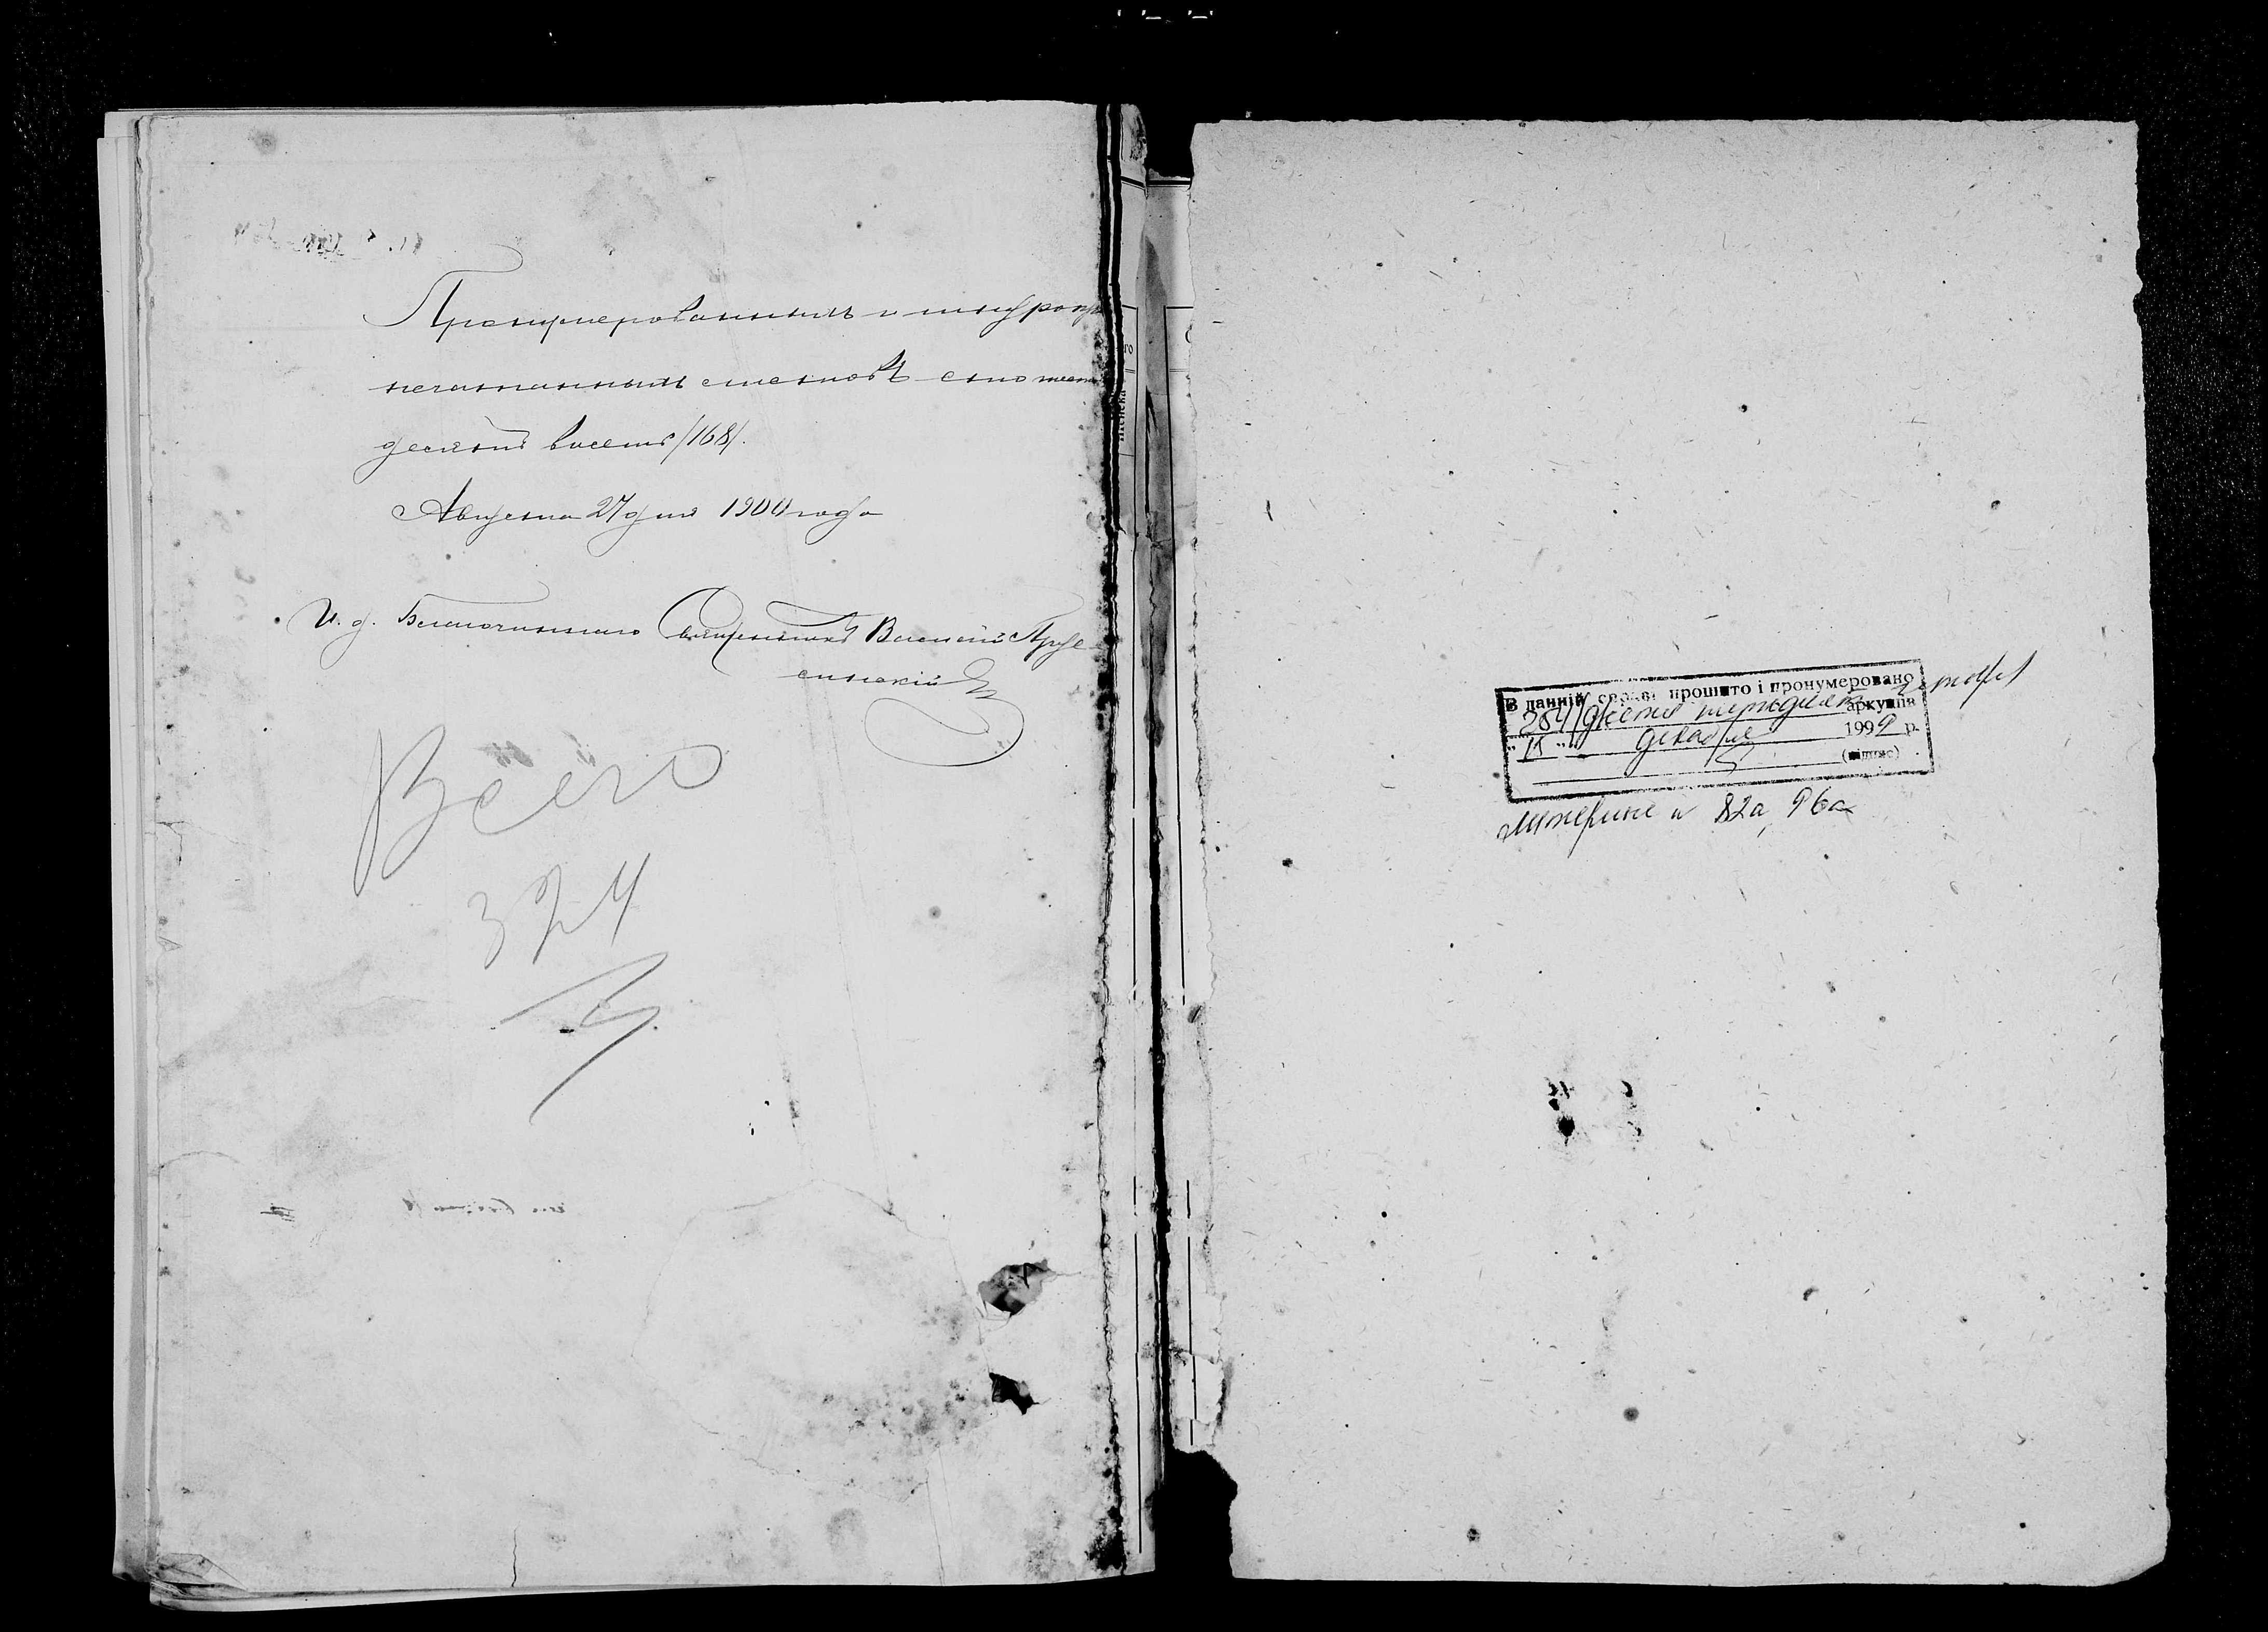 Пронумерованныхъ и шнуропе
печатанныхъ листовъ сто шесть
десятъ восемь /168/.
Августа 27 дня 1900 года
И. д. Благочиннаго Священникъ Василій
синскій
Всего
324
В данній справі прошито і пронумеровано
284 (двести четыре аркушів
"11" декабря 1999 р.
(підпис)
литерные л 82а, 96а